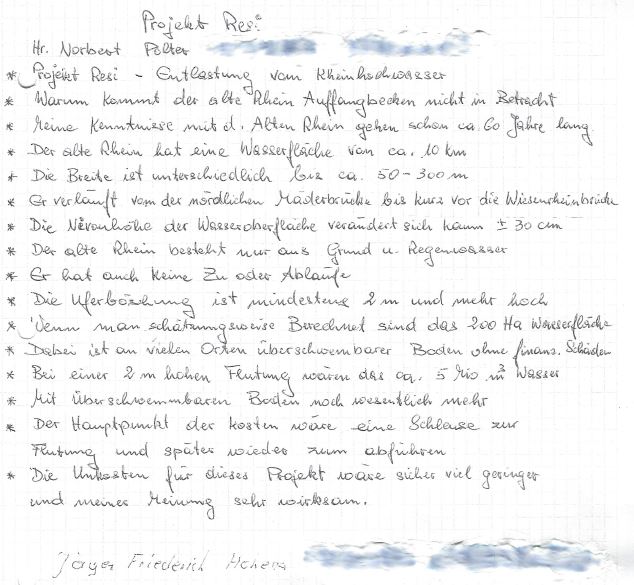 Projekt Resi
Hr. Norbert Polter
* Projekt Resi - Entlastung vom Rheinhochwasser
* Warum kommt der alte Rhein Auffangbecken nicht in Betracht
* Meine Kenntnisse mit d. Alten Rhein gehen schon ca. 60 Jahre lang
* Der alte Rhein hat eine Wasserfläche von ca. 10 km
* Die Breite ist unterschiedlich bis ca. 50-300 m
* Er verläuft von der nördlichen Mäderbrücke bis kurz vor die Wiesenrheinbrücke
* Die Nivouhöhe der Wasseroberfläche verändert sich kaum ± 30 cm
* Der alte Rhein besteht nur aus Grund u. Regenwasser
* Er hat auch keine Zu oder Abläufe
* Die Uferböschung ist mindestens 2 m und mehr hoch
* Wenn man schätzungsweise Berechnet sind das 200 Ha Wasserfläche
* Dabei ist an vielen Orten überschwembarer Boden ohne finanz. Schäden
* Bei einer 2 m hohen Flutung wären das ca. 5 Mio m³ Wasser
* Mit überschwemmbaren Boden noch wesentlich mehr
* Der Hauptpunkt der Kosten wäre eine Schleuse zur
Flutung und später wieder zum abführen
* Die Unkosten für dieses Projekt wäre sicher viel geringer
und meiner Meinung sehr wirksam.
Jäger Friederich